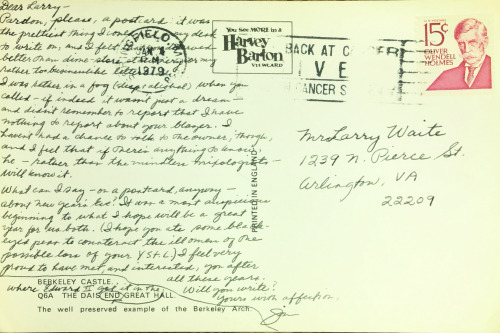 Dear Larry-
Pardon, please, a postcard: it was
the prettiest thing I on my desk
to write on, and I felt
better than dime-store or my
rather businesslike letter
I was rather in a fog (sleep + alcohol) when you
called - if indeed it wasn't just a dream -
and didn't remember to report that I have
nothing to report about your blazer. I
haven't had a chance to talk to the owner, though,
and I feel that if there's anything to know
he - rather than the mindless mixologist -
will know it.
What can I say - on a postcard, anyway -
about New Years Eve? It was a most auspicious
beginning to what I hope will be a great
year for us both. (I hope you ate some black-
eyed peas to counteract the ill omen of the
possible loss of your YSL.) I feel very
proud to have met, and interested, you after
all these years.
Will you write?
Yours with affection,
BERKELEY CASTLE.
where Edward II got it in the
Q6A THE DAIS END GREAT HALL.
The well preserved example of the Berkeley Arch.
1979
You See MORE in a
Harvey
Barton
VIEWCARD
PRINTED IN ENGLAND
BACK AT CANCER
VE
CANCER S
USA
15c
OLIVER
WENDELL
HOLMES
Mr Larry Waite
1239 N. Pierce St.
Arlington, VA
22209